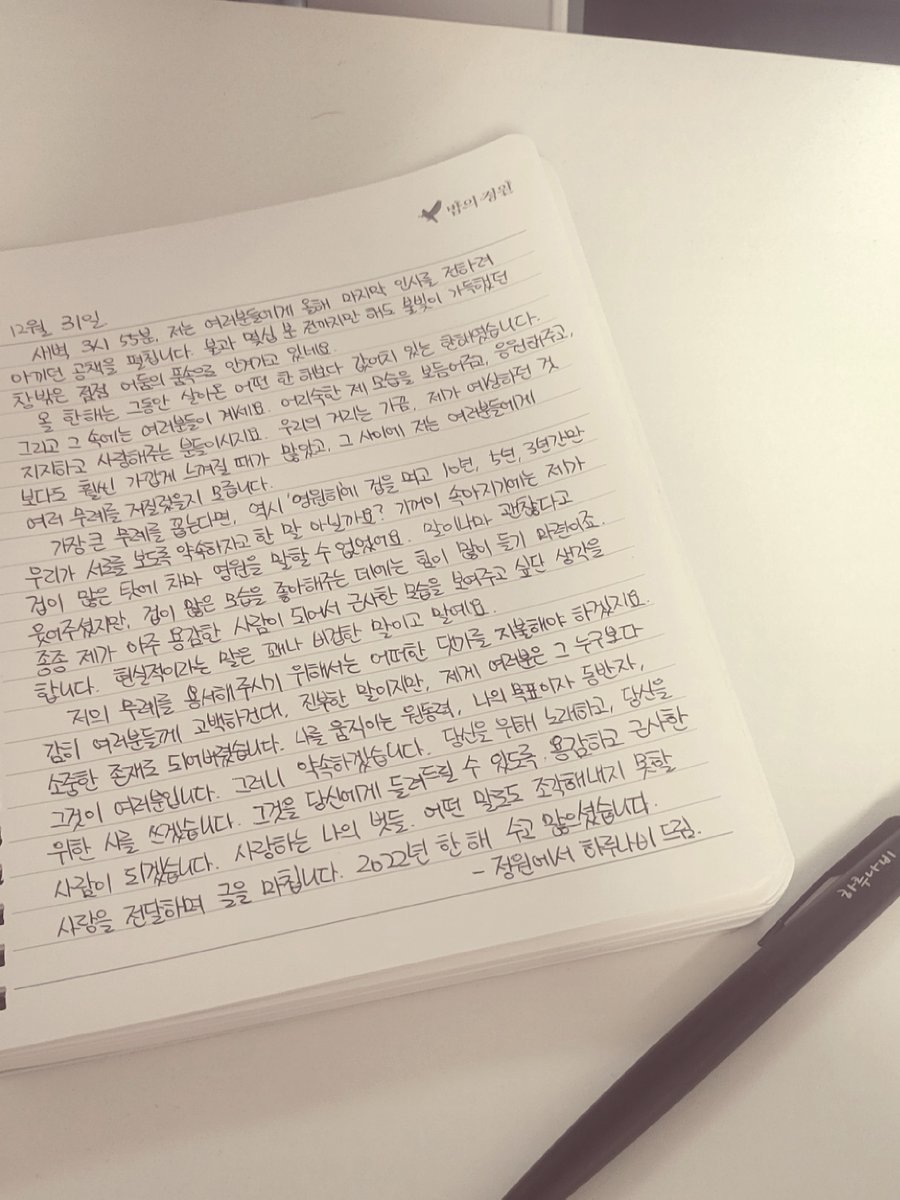 밤의 정원
12월 31일
새벽 3시 55분, 저는 여러분들에게 올해 마지막 인사를 전하러
아끼던 공책을 펼칩니다. 불과 몇십 분 전까지만 해도 불빛이 가득했던
창밖은 점점 어둠의 품속으로 안겨가고 있네요.
올 한해는 그동안 살아온 어떤 한 해보다 값어치 있는 한해였습니다.
그리고 그 속에는 여러분들이 계세요. 어리숙한 제 모습을 보듬어주고, 응원해주고,
지지하고 사랑해주는 분들이시지요. 우리의 거리는 가끔, 제가 예상하던 것
보다도 훨씬 가깝게 느껴질 때가 많았고, 그 사이에 저는 여러분들에게
여러 무례를 저질렀을지 모릅니다.
가장 큰 무례를 꼽는다면, 역시 '영원히'에 겁을 먹고 10년, 5년, 3년간만
우리가 서로를 보도록 약속하자고 한 말 아닐까요? 기꺼이 속아지기에는 제가
겁이 많은 탓에 차마 영원을 말할 수 없었어요. 말이나마 괜찮다고
웃어주셨지만, 겁이 많은 모습을 좋아해주는 데에는 힘이 많이 들기 마련이죠.
종종 제가 아주 용감한 사람이 되어서 근사한 모습을 보여주고 싶단 생각을
합니다. 현실적이라는 말은 꽤나 비겁한 말이고 말예요.
저의 무례를 용서해주시기 위해서는 어떠한 댓가를 지불해야 하겠지요.
감히 여러분들께 고백하건대, 진부한 말이지만, 제게 여러분은 그 누구보다
소중한 존재로 되어버렸습니다. 나를 움직이는 원동력, 나의 목표이자 동반자,
그것이 여러분입니다. 그러니 약속하겠습니다. 당신을 위해 노래하고, 당신을
위한 시를 쓰겠습니다. 그것을 당신에게 들려드릴 수 있도록 용감하고 근사한
사람이 되겠습니다. 사랑하는 나의 벗들. 어떤 말로도 조각해내지 못할
사랑을 전달하며 글을 마칩니다. 2022년 한 해 수고 많으셨습니다.
- 정원에서 하루나비 드림.
하루나비